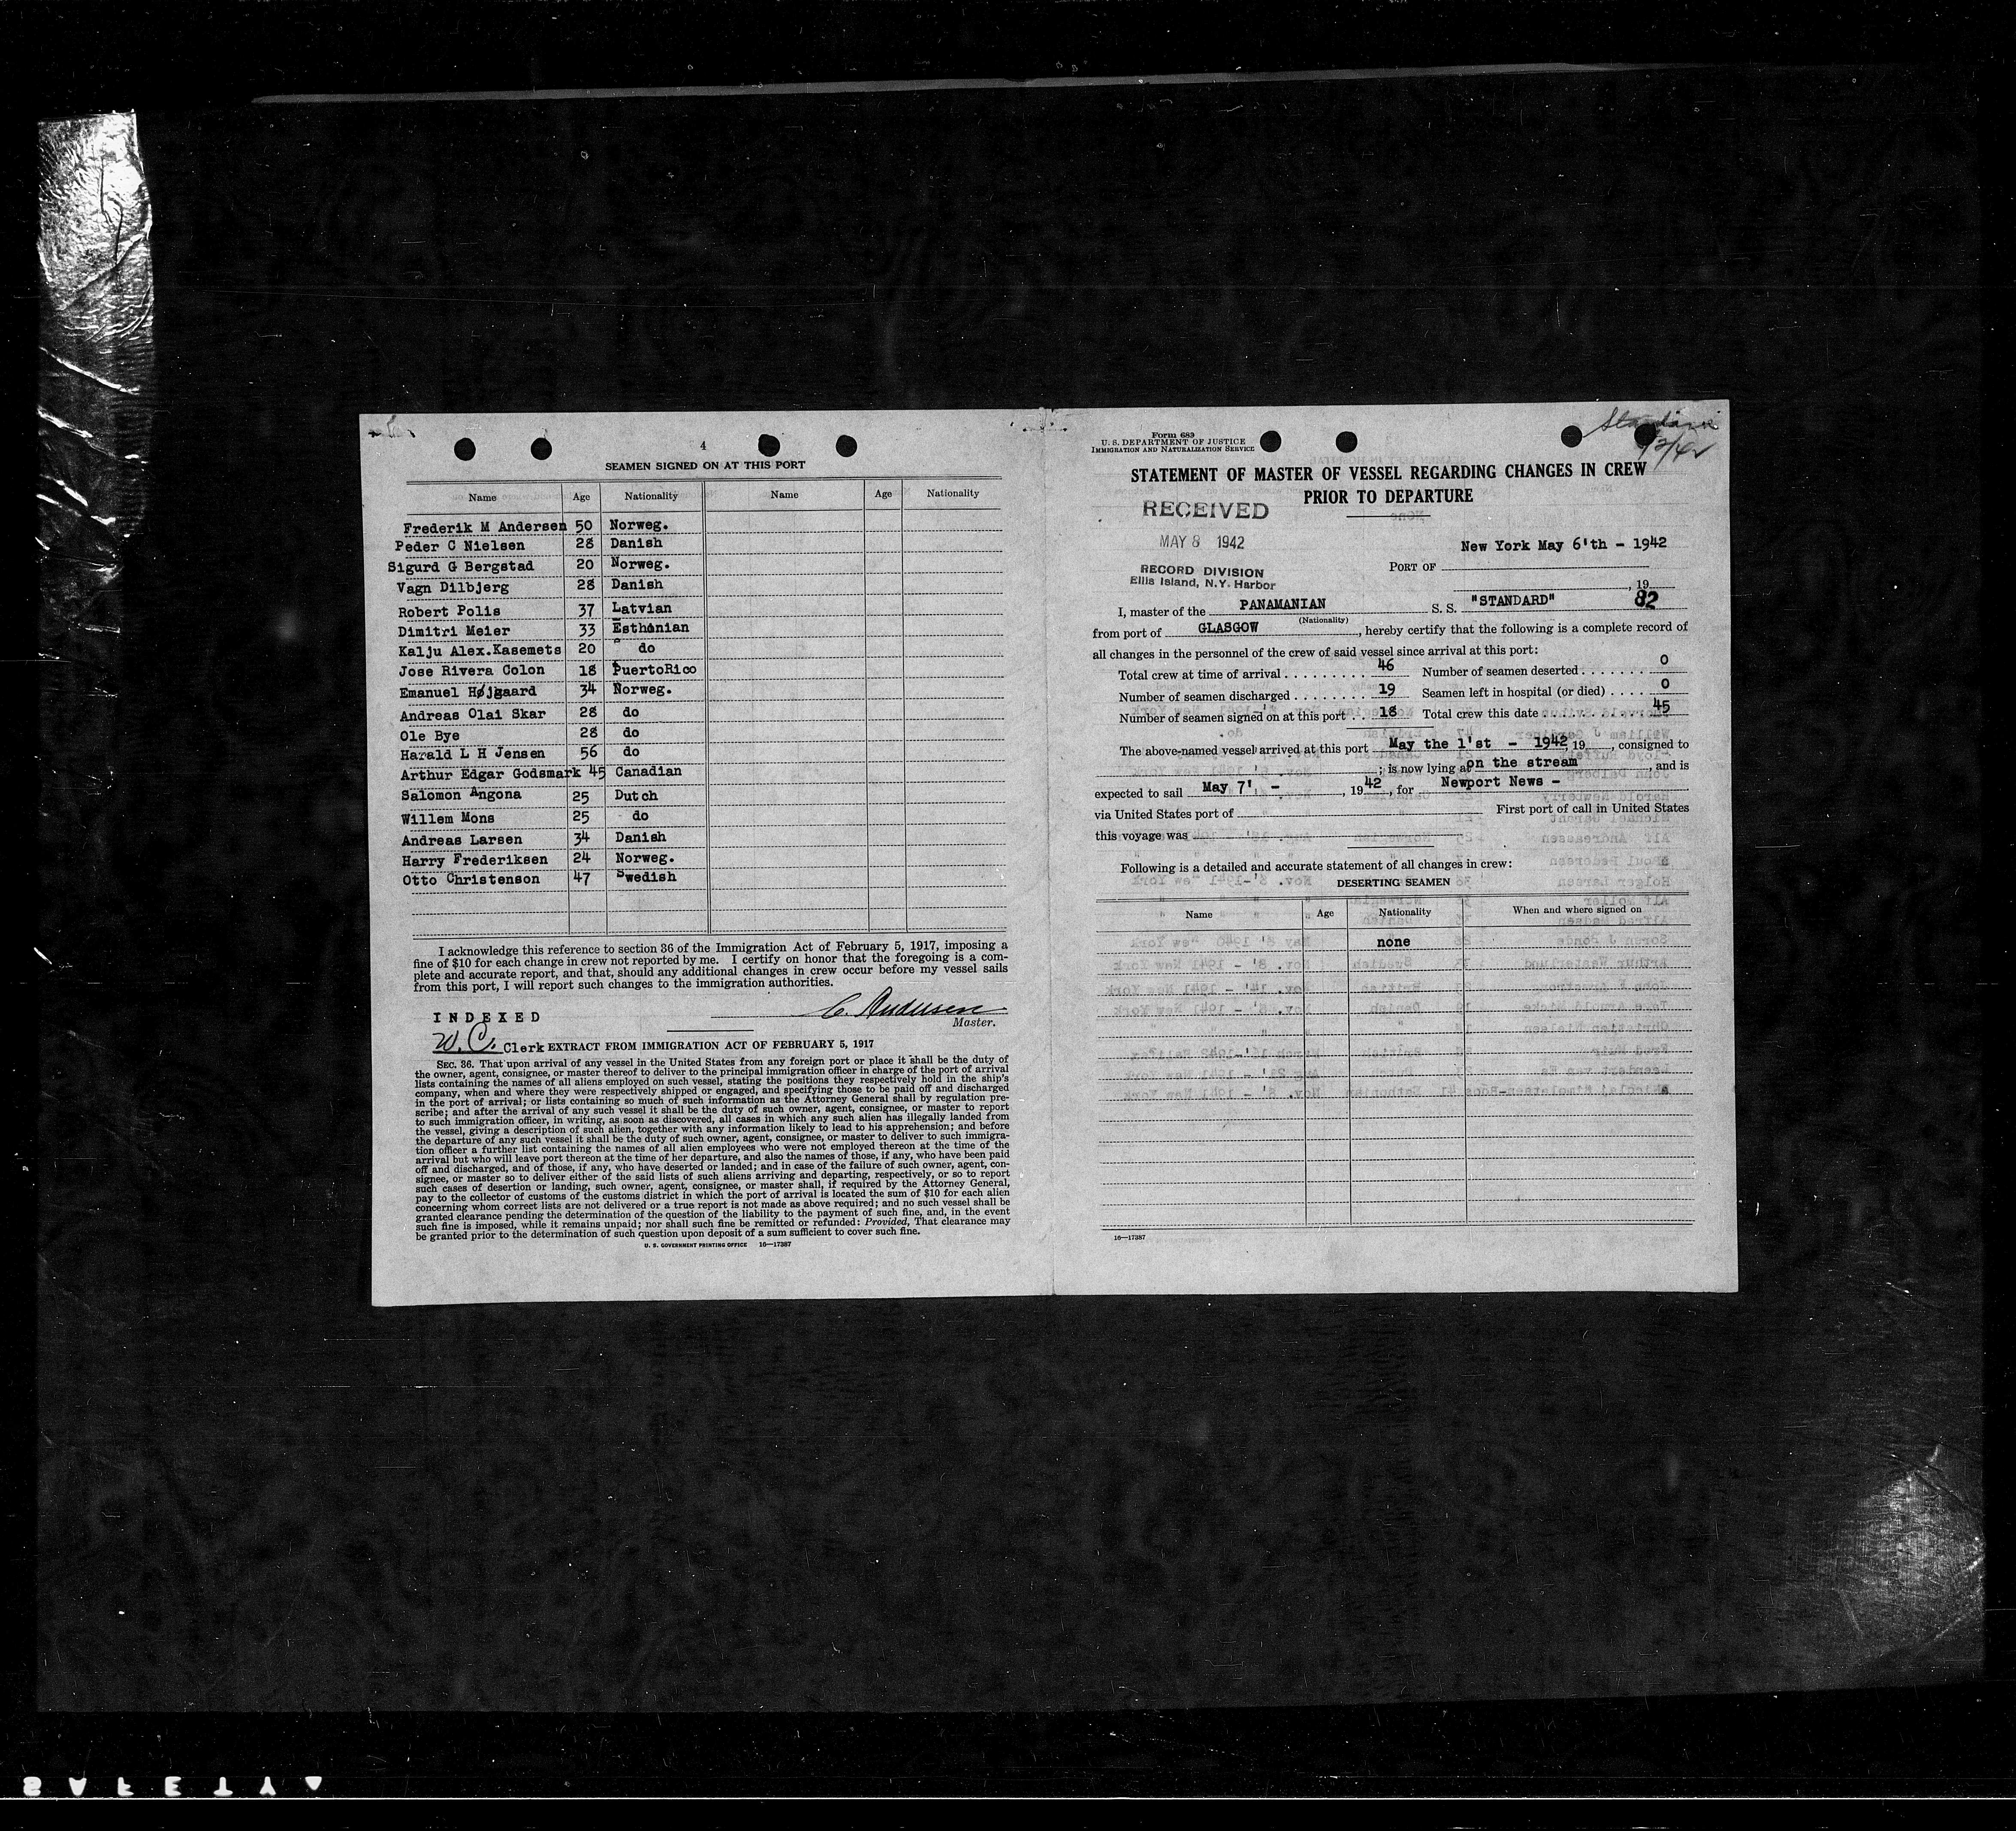 4
SEAMEN SIGNED ON AT THIS PORT
Name Age Nationality Name Age Nationality
Frederik M Andersen 50 Norweg.
Peder C Nielsen 28 Danish
Sigurd G Bergstad 20 Norweg.
Vagn Dilbjerg 28 Danish
Robert Polis 37 Latvian
Dimitri Meier 33 Esthonian
Kalju Alex.Kasemets 20 " do
Jose Rivera Colon 18 PuertoRico
Emanuel Højgaard 34 Norweg.
Andreas Olai Skar 28 do
Ole Bye 28 do
Harald L H Jensen 56 do
Arthur Edgar Godsmark 45 Canadian
Salomon Angona 25 Dutch
Willem Mons 25 do
Andreas Larsen 34 Danish
Harry Frederiksen 24 Norweg.
Otto Christenson 47 Swedish
I acknowledge this reference to section 36 of the Immigration Act of February 5, 1917, imposing a
fine of $10 for each change in crew not reported by me. I certify on honor that the foregoing is a com-
plete and accurate report, and that, should any additional changes in crew occur before my vessel sails
from this port, I will report such changes to the immigration authorities.
C. Andersen
Master.
INDEXED
W. C. Clerk EXTRACT FROM IMMIGRATION ACT OF FEBRUARY 5, 1917
SEC. 36. That upon arrival of any vessel in the United States from any foreign port or place it shall be the duty of
the owner, agent, consignee, or master thereof to deliver to the principal immigration officer in charge of the port of arrival
lists containing the names of all aliens employed on such vessel, stating the positions they respectively hold in the ship's
company, when and where they were respectively shipped or engaged, and specifying those to be paid off and discharged
in the port of arrival; or lists containing so much of such information as the Attorney General shall by regulation pre-
scribe; and after the arrival of any such vessel it shall be the duty of such owner, agent, consignee, or master to report
to such immigration officer, in writing, as soon as discovered, all cases in which any such alien has illegally landed from
the vessel, giving a description of such alien, together with any information likely to lead to his apprehension; and before
the departure of any such vessel it shall be the duty of such owner, agent, consignee, or master to deliver to such immigra-
tion officer a further list containing the names of all alien employees who were not employed thereon at the time of the
arrival but who will leave port thereon at the time of her departure, and also the names of those, if any, who have been paid
off and discharged, and of those, if any, who have deserted or landed; and in case of the failure of such owner, agent, con-
signee, or master so to deliver either of the said lists of such aliens arriving and departing, respectively, or so to report
such cases of desertion or landing, such owner, agent, consignee, or master shall, if required by the Attorney General,
pay to the collector of customs of the customs district in which the port of arrival is located the sum of $10 for each alien
concerning whom correct lists are not delivered or a true report is not made as above required; and no such vessel shall be
granted clearance pending the determination of the question of the liability to the payment of such fine, and, in the event
such fine is imposed, while it remains unpaid; nor shall such fine be remitted or refunded: Provided, That clearance may
be granted prior to the determination of such question upon deposit of a sum sufficient to cover such fine.
U. S. GOVERNMENT PRINTING OFFICE 16—17387
Form 683
U. S. DEPARTMENT OF JUSTICE
IMMIGRATION AND NATURALIZATION SERVICE
Standard
STATEMENT OF MASTER OF VESSEL REGARDING CHANGES IN CREW
PRIOR TO DEPARTURE
RECEIVED
MAY 8 1942
RECORD DIVISION
Ellis Island, N.Y. Harbor
New York May 6'th - 1942
PORT OF
, 19
I, master of the PANAMANIAN S. S. "STANDARD" 82
(Nationality)
from port of GLASGOW, hereby certify that the following is a complete record of
all changes in the personnel of the crew of said vessel since arrival at this port:
Total crew at time of arrival 46 Number of seamen deserted 0
Number of seamen discharged 19 Seamen left in hospital (or died) 0
Number of seamen signed on at this port 18 Total crew this date 45
The above-named vessel arrived at this port May the 1'st - 1942, 19, consigned to
; is now lying at on the stream, and is
expected to sail May 7' -, 1942, for Newport News -
via United States port of First port of call in United States
this voyage was
Following is a detailed and accurate statement of all changes in crew:
DESERTING SEAMEN
Name Age Nationality When and where signed on
none
16—17387
SAFETY